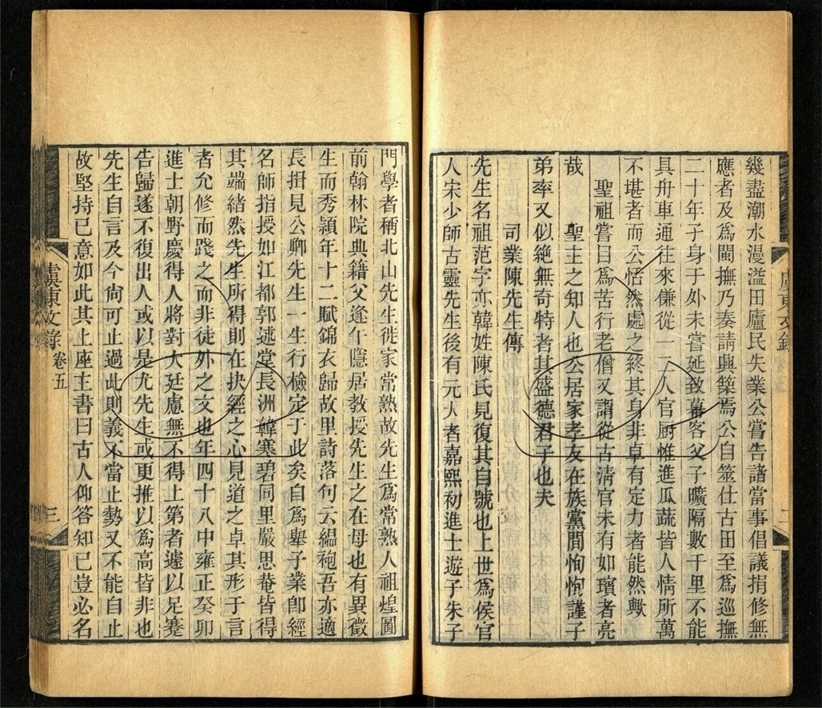 幾盡潮水漫溢田廬民失業公嘗告諸當事倡議捐修無
應者及爲閩撫乃奏請興築焉公自筮仕古田至爲巡撫
二十年子身于外未嘗延致幕客父子曠隔數千里不能
具舟車通往來傔從一二人官厨惟進瓜蔬皆人情所萬
不堪者而公恬然處之終其身非卓有定力者能然歟
聖祖嘗目爲苦行老僧又謂從古清官未有如璸者亮
哉　聖主之知人也公居家孝友在族黨間恂恂謹子
弟率又似絶無奇特者其盛德君子也夫
司業陳先生傳
先生名祖范字亦韓姓陳氏見復其自號也上世爲候官
人宋少師古靈先生後有元大者嘉熙初進士遊子朱子
門學者稱北山先生徙家常熟故先生爲常熟人祖煌圖
前翰林院典籍父逢午隱居教授先生之在母也有異徵
生而秀頴年十二賦錦衣歸故里詩落句云縕袍吾亦適
長揖見公卿先生一生行檢定于此矣自爲舉子業卽經
名師指授如江都郭述堂長洲韓寒碧同里嚴思菴皆得
其端緒然先生所得則在抉經之心見道之卓其形于言
者允修而踐之而非徒外之文也年四十八中雍正癸卯
進士朝野慶得人將對大廷慮無不得上第者遽以足蹇
告歸遂不復出人或以是尤先生或更推以爲高皆非也
先生自言及今尙可止過此則義不當止勢又不能自止
故堅持已意如此其上座主書曰古人仰答知已豈必名
虞東文錄　卷五　三